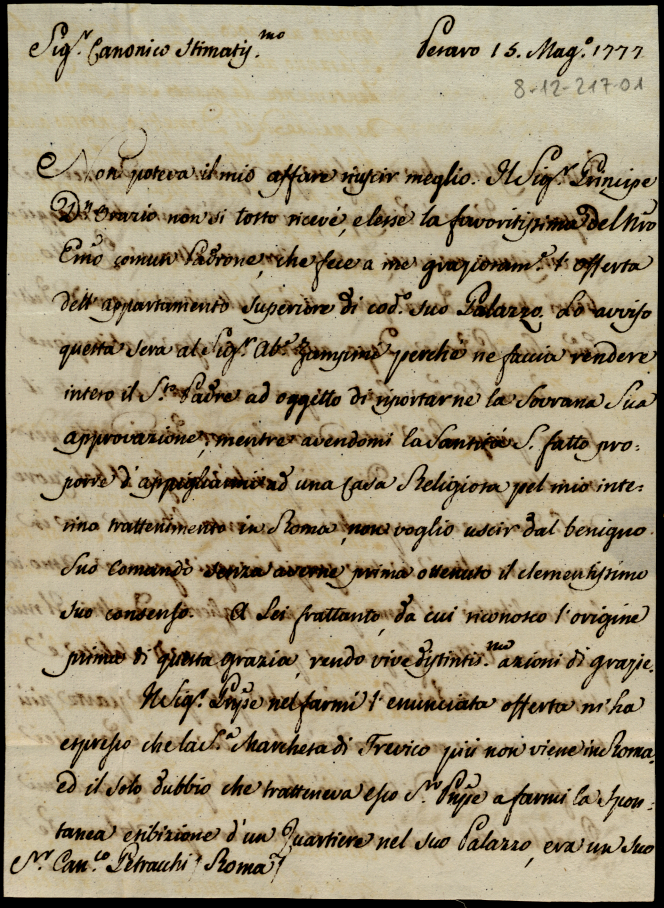 Sig.r Canonico Stimatiss.mo
Pesaro 15. Mag.o 1777
8-12-217-01
Non poteva il mio affare riuscir meglio. Il Sig.r Principe
D.n Orazio non si tosto ricevé, e lesse la favoritissima del Nro
Emo comun Padrone, che fece a me graziosam.e l'offerta
dell'appartamento superiore di cod.o suo Palazzo. Lo avviso
questa sera al Sig.r Ab.e perchè ne faccia rendere
inteso il S.to Padre ad oggetto di riportarne la Sovrana Sua
approvazione, mentre avendomi la Santità S. fatto pro-
porre d'appigliarmi ad una Casa Religiosa pel mio inte-
rino trattenimento in Roma, non voglio uscir dal benigno
suo comando senza averne prima ottenuto il clementissimo
suo consenso. A Lei frattanto, da cui riconosco l'origine
prima di questa grazia, rendo vive distintis.me azioni di grazie.
Il Sig.r Pnpe nel farmi l'enunciata offerta m'ha
espresso che la S.ra Marchesa di Trevico più non viene in Roma,
ed il solo dubbio che tratteneva esso S.r Pnpe a farmi la spon-
tanea esibizione d'un Quartiere nel suo Palazzo, era un suo
S.r Can.co Petracchi / Roma /